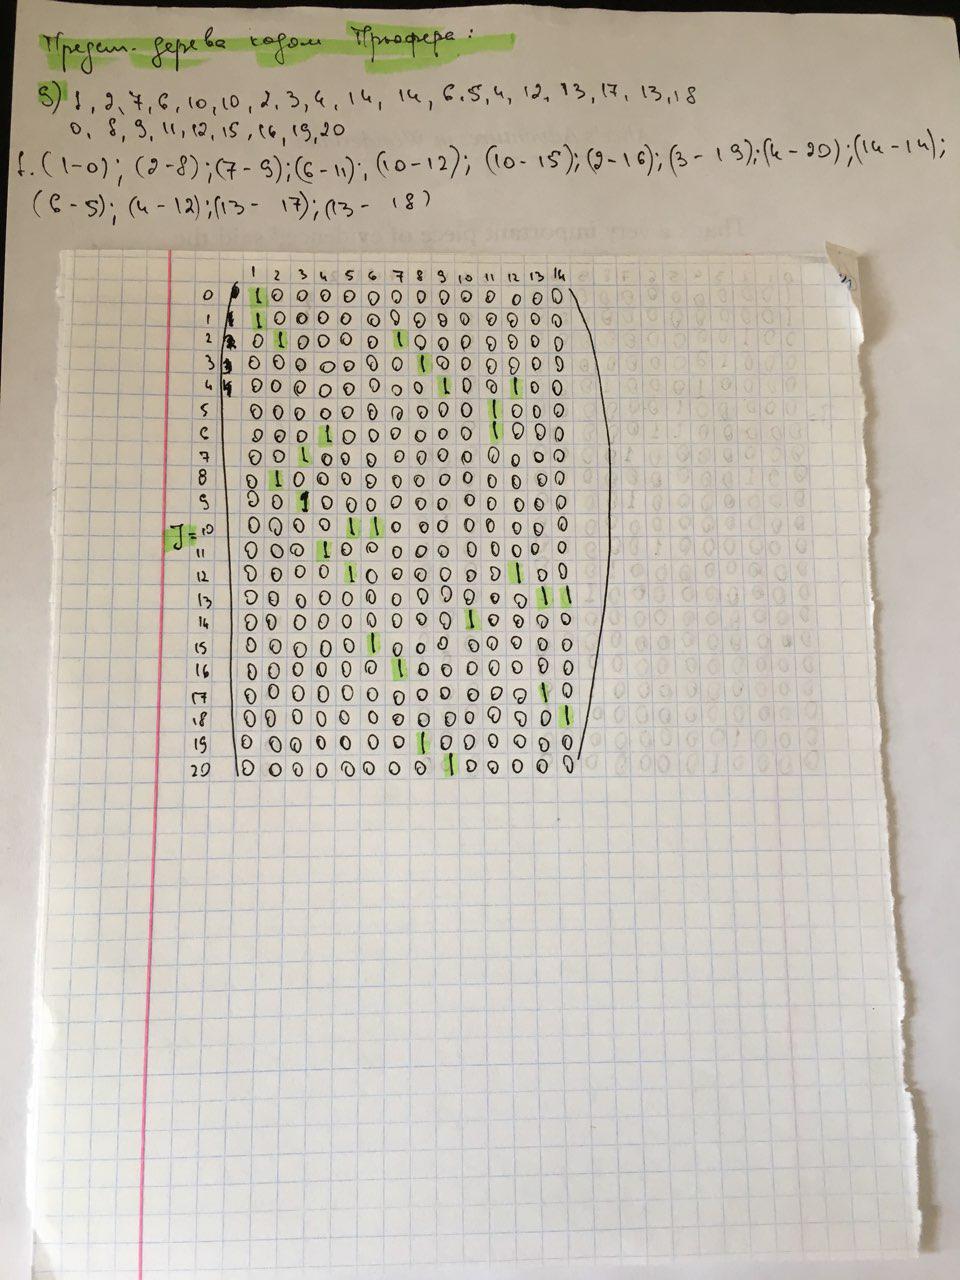 Предст. дерева кодом Прюфера:
9) 1, 2, 7, 6, 10, 10, 2, 3, 4, 14, 14, 6, 5, 4, 12, 13, 17, 13, 18
0, 8, 9, 11, 12, 15, 16, 19, 20
f. (1-0); (2-8); (7-9); (6-11); (10-12); (10-15); (2-16); (3-19); (4-20); (14-14);
(6-5); (4-12); (13-17); (13-18)
1 2 3 4 5 6 7 8 9 10 11 12 13 14
0 1 0 0 0 0 0 0 0 0 0 0 0 0 0
1 1 0 0 0 0 0 0 0 0 0 0 0 0 0
2 0 1 0 0 0 0 1 0 0 0 0 0 0 0
3 0 0 0 0 0 0 0 1 0 0 0 0 0 0
4 0 0 0 0 0 0 0 0 1 0 0 1 0 0
5 0 0 0 0 0 0 0 0 0 0 1 0 0 0
6 0 0 0 1 0 0 0 0 0 0 1 0 0 0
7 0 0 1 0 0 0 0 0 0 0 0 0 0 0
8 0 1 0 0 0 0 0 0 0 0 0 0 0 0
9 0 0 1 0 0 0 0 0 0 0 0 0 0 0
J = 10 0 0 0 0 1 1 0 0 0 0 0 0 0 0
11 0 0 0 1 0 0 0 0 0 0 0 0 0 0
12 0 0 0 0 1 0 0 0 0 0 0 1 0 0
13 0 0 0 0 0 0 0 0 0 0 0 0 1 1
14 0 0 0 0 0 0 0 0 0 1 0 0 0 0
15 0 0 0 0 0 1 0 0 0 0 0 0 0 0
16 0 0 0 0 0 0 1 0 0 0 0 0 0 0
17 0 0 0 0 0 0 0 0 0 0 0 0 1 0
18 0 0 0 0 0 0 0 0 0 0 0 0 0 1
19 0 0 0 0 0 0 0 1 0 0 0 0 0 0
20 0 0 0 0 0 0 0 0 1 0 0 0 0 0